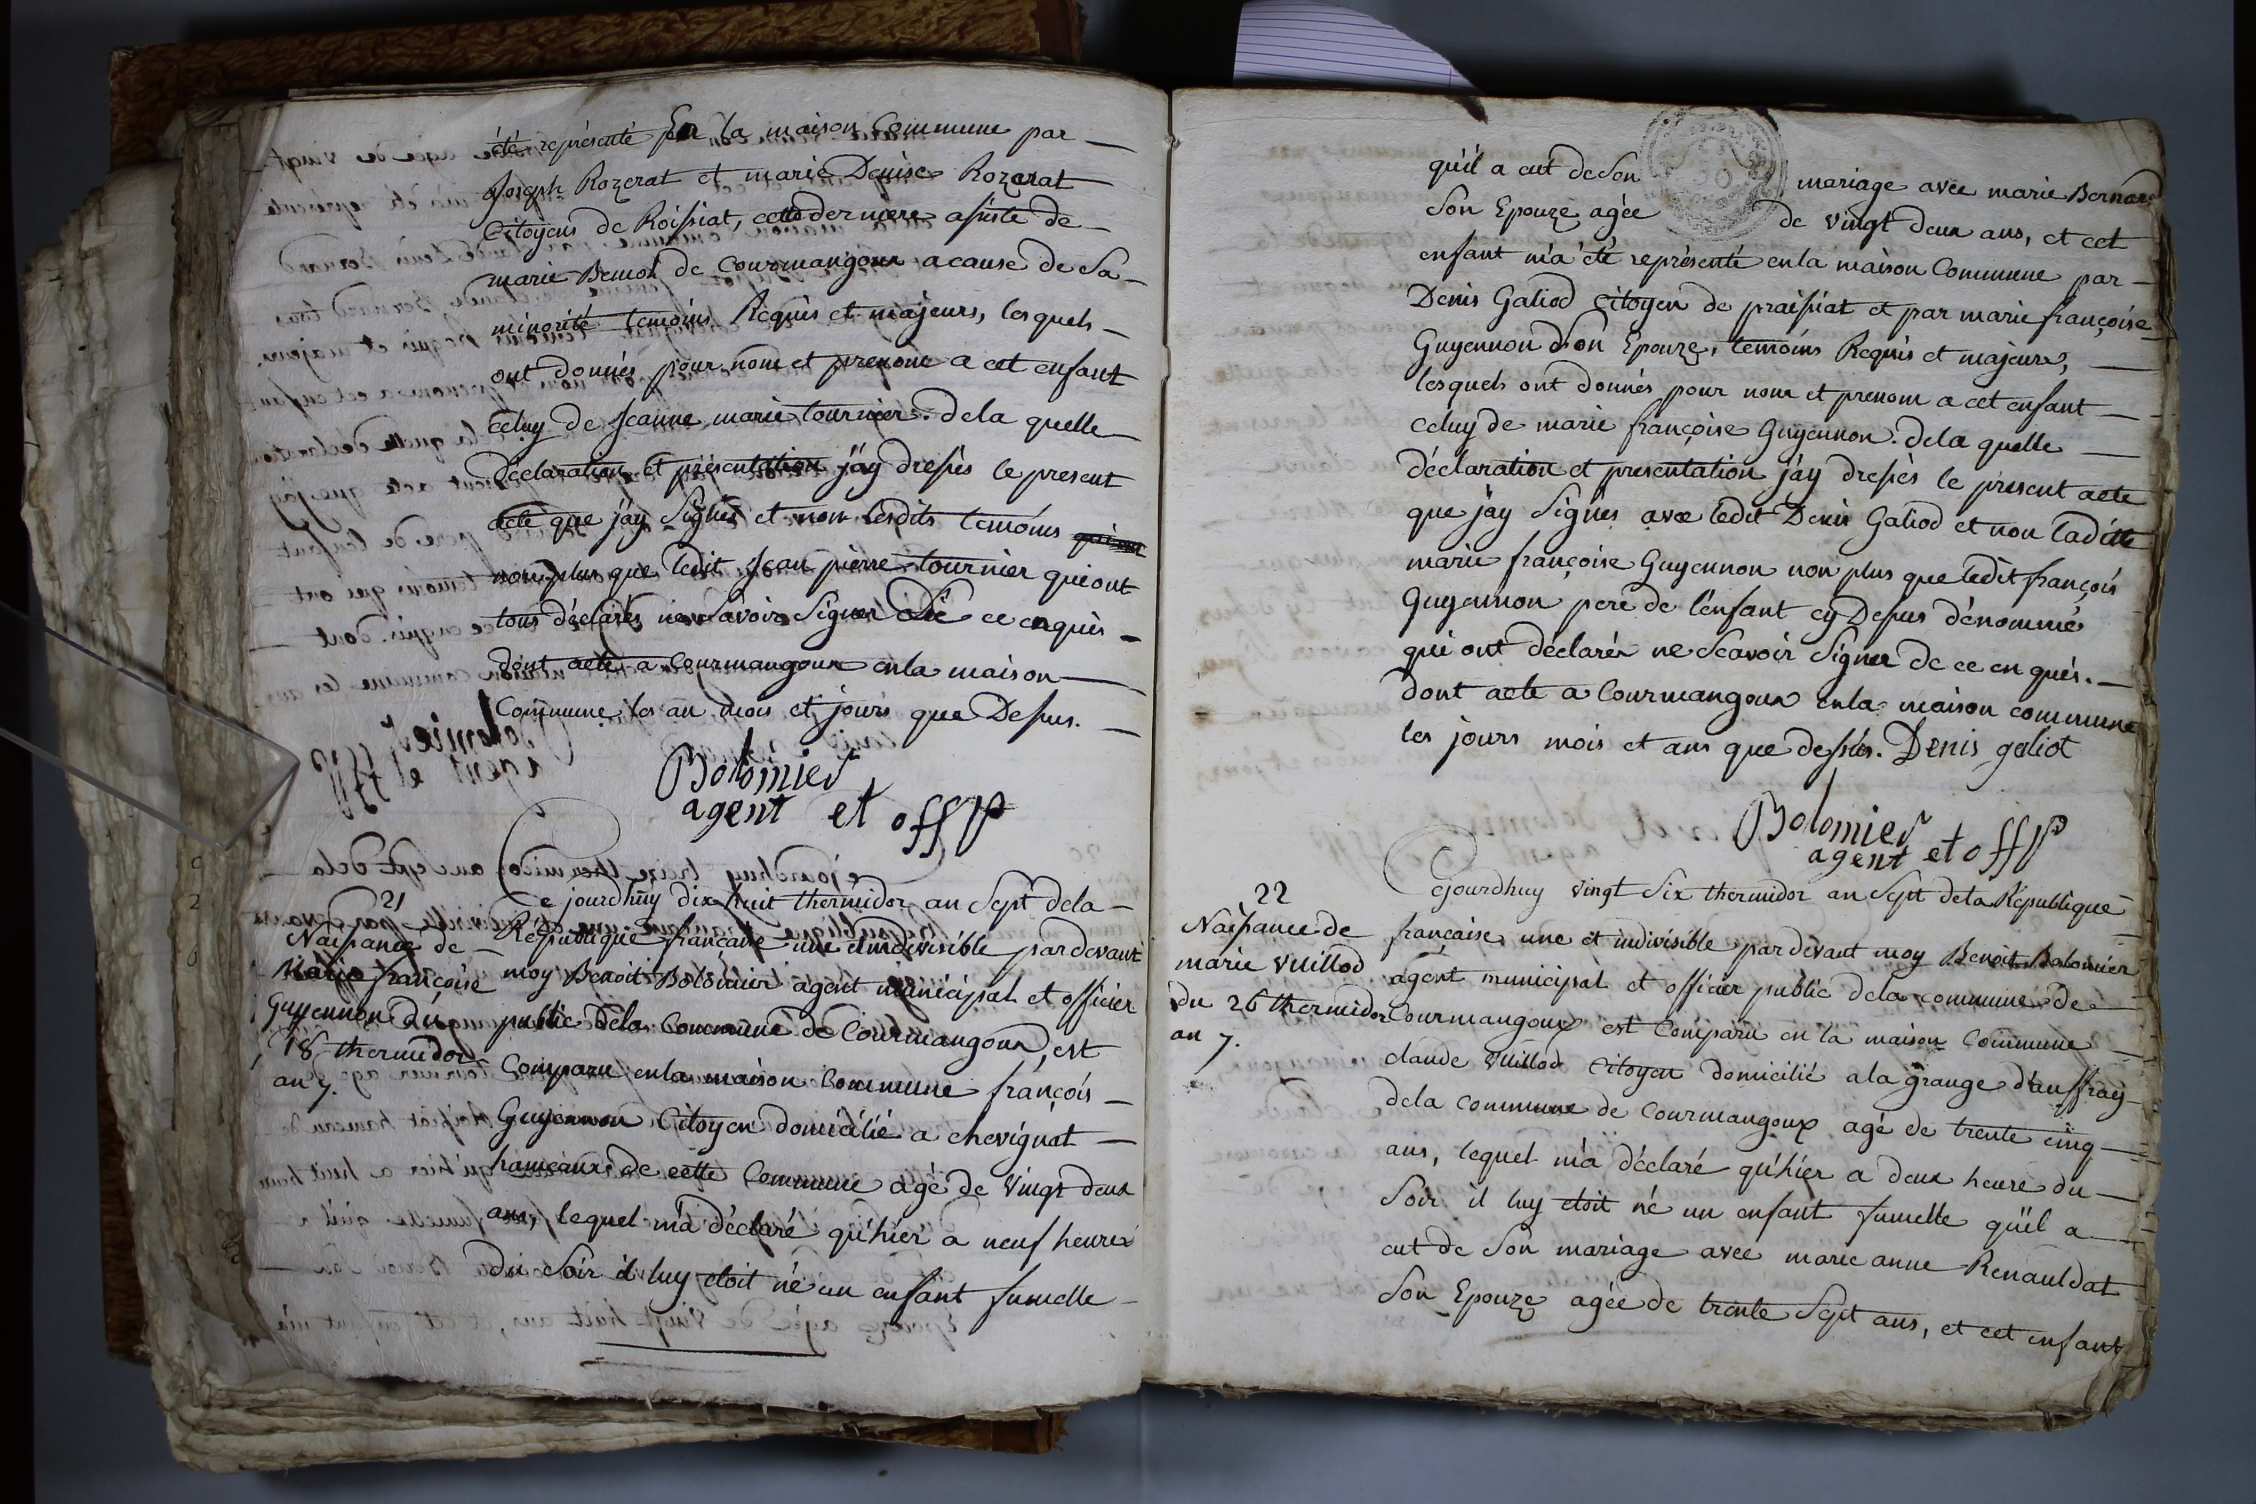 été représenté En la maison Commune par
Joseph Rozerat et marie Denise Rozerat
Citoyens de Roissiat, cette derniere asisté de
marie Benoit de Courmangoux a cause de Sa
minorité temoins Requis et majeurs, lesquels
ont donnés pour nom et prenom a cet enfant
celuy de Jeanne marie tournier. dela quelle
déclaration et présentation j'ay dressés le present
acte que j'ay Signés et non lesdits temoins
non plus que ledit Jean pierre tournier qui ont
tous déclarés ne Savoir Signer De ce enquis
dont acte a Courmangoux enla maison
Commune, les an mois et jours que Dessus.
Bolomier
agent et offP
21
Naissance de
Marie françoise
Guyennon du
18 thermidor
an 7.
Cejourdhuy dix huit thermidor an Sept dela
Republique française une et indivisible pardevant
moy Benoit Bolomier agent municipal et officier
public dela Commune de Courmangoux, est
Comparu enla maison Commune françois
Guyennon Citoyen domicilié a chevignat
hameaux de cette Commune agé de Vingt deux
ans, lequel m'a déclaré qu'hier a neuf heures
du Soir il luy etoit né un enfant fumelle
qu'il a eut de Son mariage avec marie Bernard
Son Epouze agée de Vingt deux ans, et cet
enfant m'a été représenté enla maison Commune par
Denis Galiod Citoyen de praissiat et par marie françoise
Guyennon Son Epouze, temoins Requis et majeurs,
lesquels ont donnés pour nom et prenom a cet enfant
Celuy de marie françoise Guyennon. dela quelle
déclaration et presentation j'ay dressés le présent acte
que j'ay Signés avec ledit Denis Galiod et non ladite
marie françoise Guyennon non plus que ledit françois
Guyennon pere de l'enfant cy Dessus dénommé
qui ont déclarés ne Scavoir Signer de ce enquis.
dont acte a Courmangoux enla maison commune
les jours mois et ans que dessus. Denis galiot
Bolomier
agent et offP
22
Naissance de
marie Vuillod
du 26 thermidor
an 7.
Cejourdhuy Vingt Six thermidor an Sept dela Republique
française une et indivisible pardevant moy Benoit Bolomier
agent municipal et officier public dela commune de
Courmangoux est Comparu en la maison Commune
claude Vuillod Citoyen domicilié a la grange d'auffray
dela commune de Courmangoux agé de trente cinq
ans, lequel m'a déclaré qu'hier a deux heure du
Soir il luy etoit né un enfant fumelle qu'il a
eut de Son mariage avec marie anne Renauldat
Son Epouze agée de trente Sept ans, et cet enfant